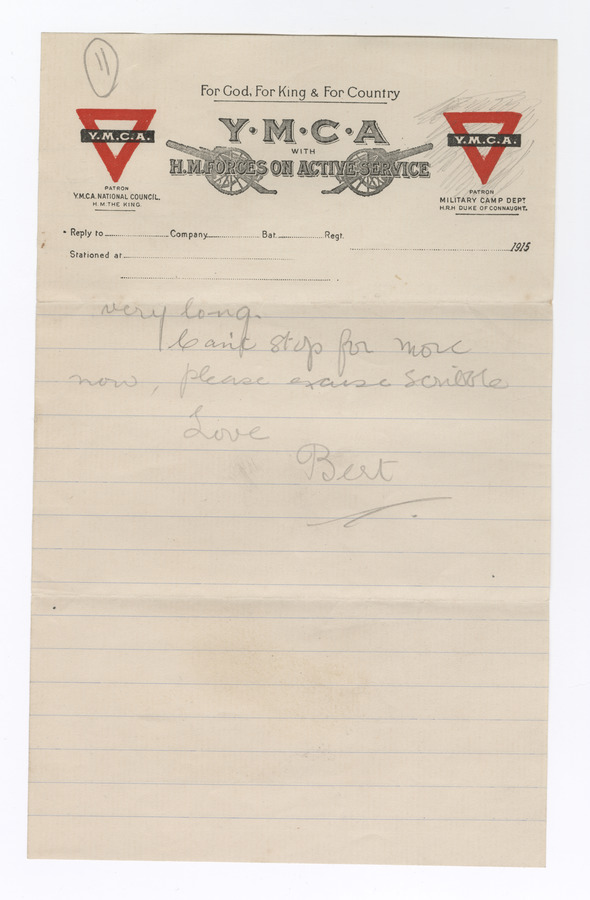 11
For God, For King & For Country
Y·M·C·A
WITH
H.M. FORCES ON ACTIVE SERVICE
Y.M.C.A.
PATRON
Y.M.C.A. NATIONAL COUNCIL.
H.M. THE KING.
Y.M.C.A.
PATRON
MILITARY CAMP DEPT
H.R.H. DUKE OF CONNAUGHT.
Reply to Company Bat. Regt.
1915
Stationed at
very long.
Can't stop for more
now, please excuse scribble
Love
Bert